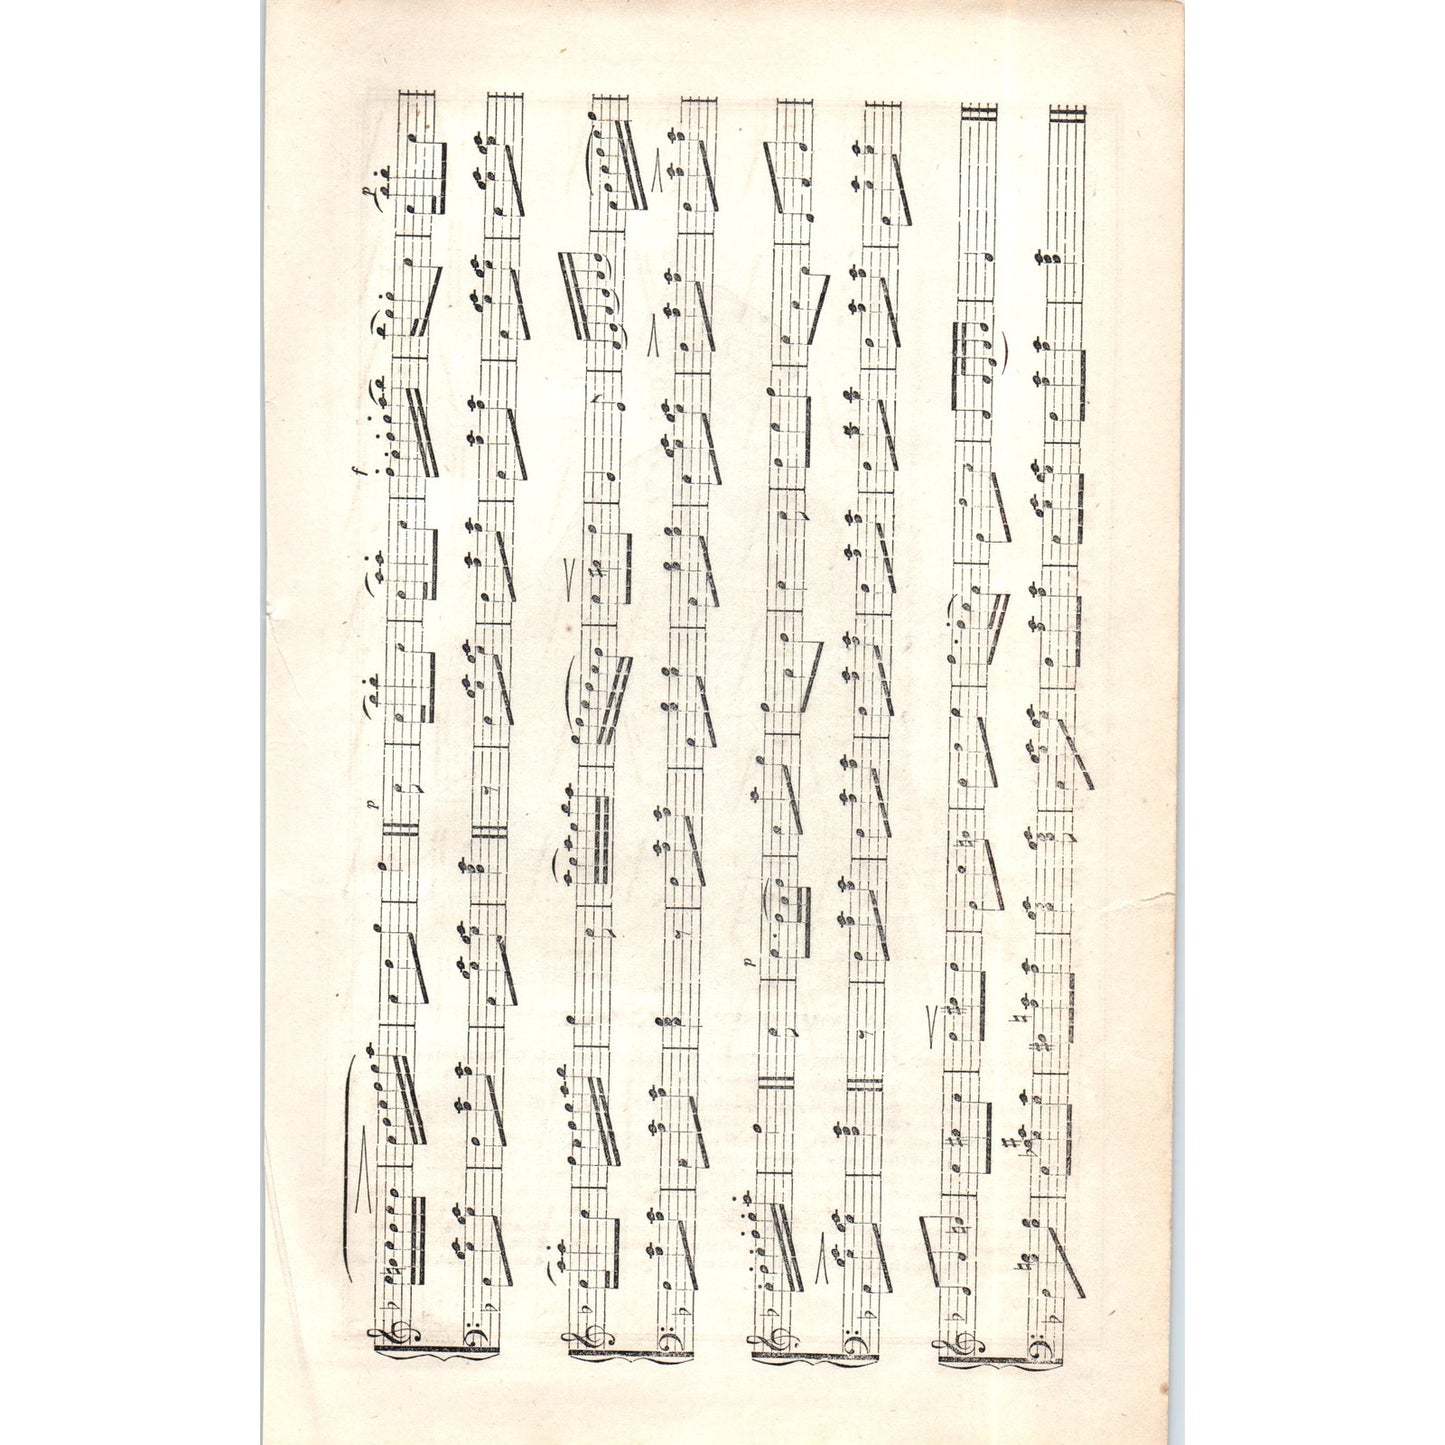 p
f
p
p